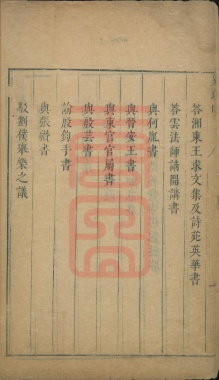 答湘東王求文集及詩苑英華書
答雲法師請開講書
與何胤書
與晉安王書
與東宮官屬書
與殷芸書
諭殷鈞手書
與張纘書
駁劉僕舉樂之議